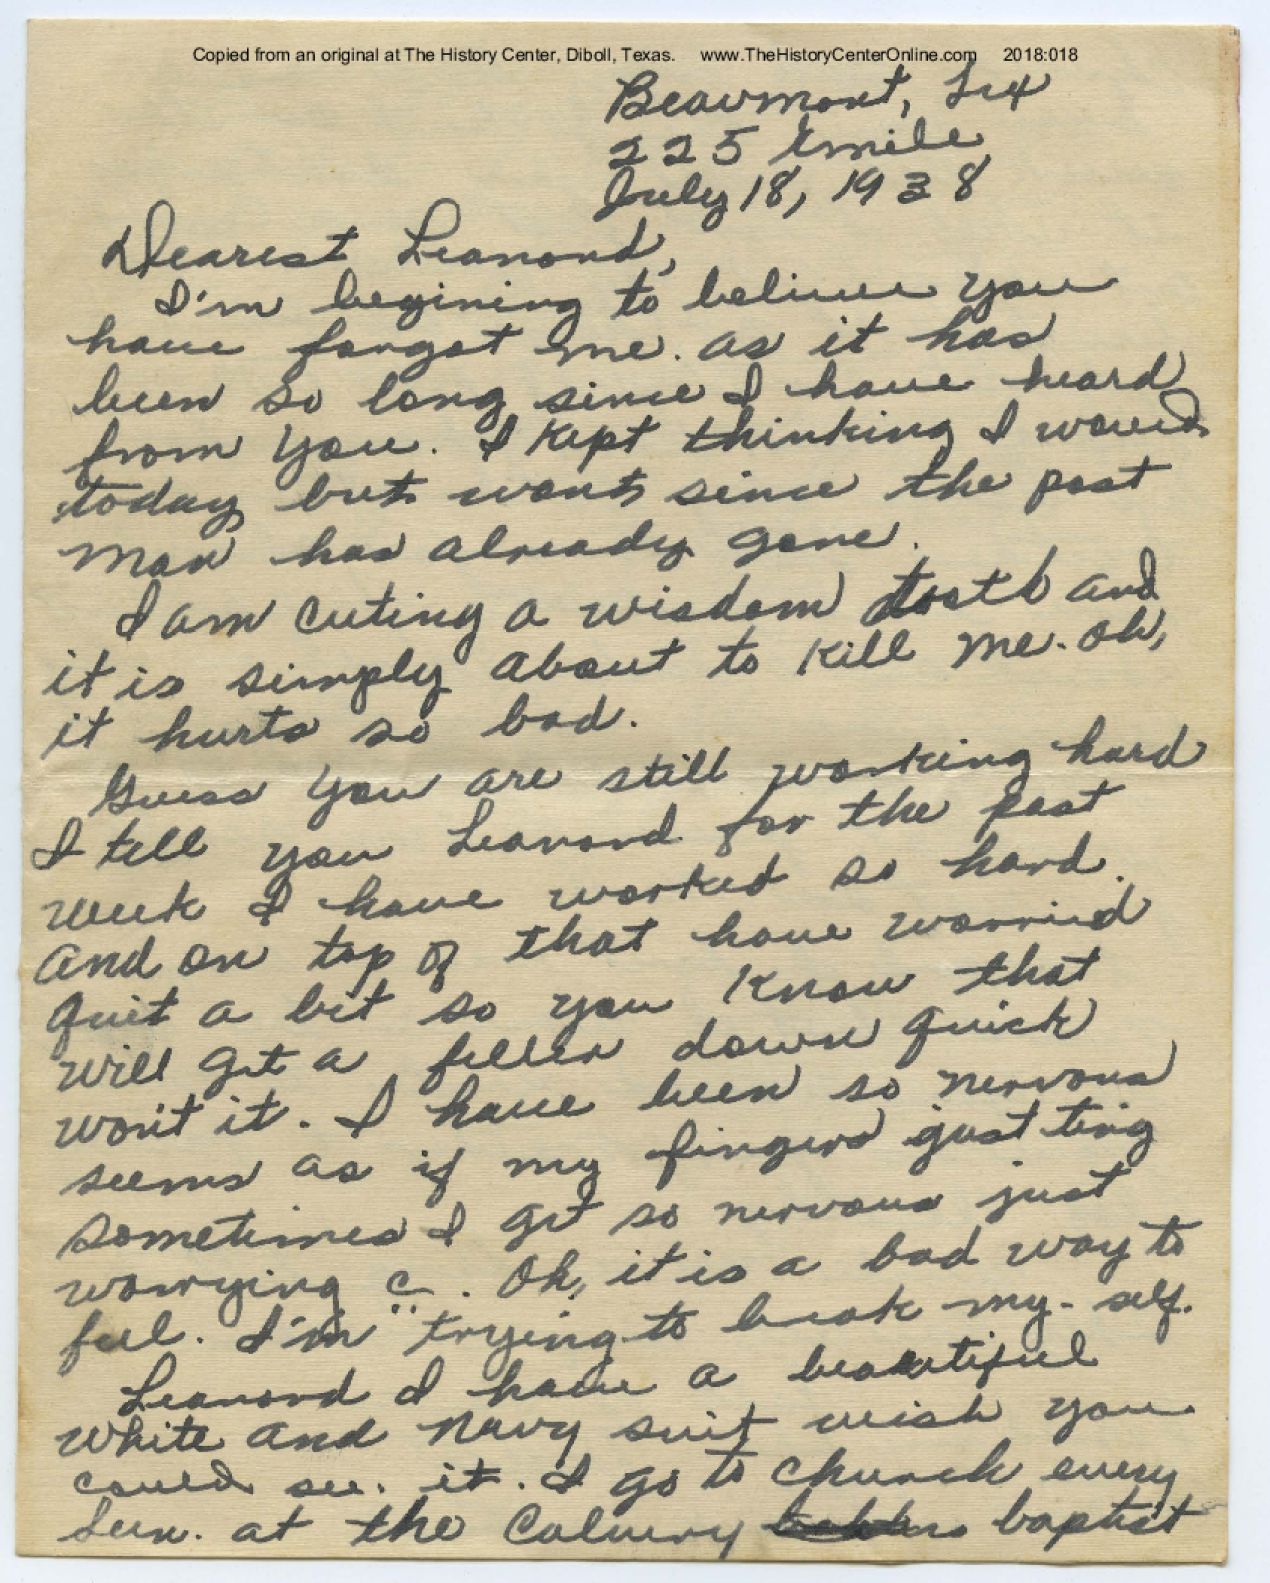 Copied from an original at The History Center, Diboll, Texas. www.TheHistoryCenterOnline.com 2018:018
Beaumont, Tex
225 Emile
July 18, 1938
Dearest Leanond,
I'm begining to believe you
have forgot me. as it has
been so long since I have heard
from you. I kept thinking I would
today but wont since the post
man has already gone.
I am cuting a wisdom tooth and
it is simply about to kill me. Oh,
it hurts so bad.
Guess you are still working hard
I tell you Leanond for the past
week I have worked so hard.
and on top of that have worried
quit a bit so you know that
will get a feller down quick
won't it. I have been so nervous
seems as if my fingers just ting
sometimes I get so nervous just
worrying. Oh, it is a bad way to
feel. I'm trying to break my-self.
Leanond I have a beautiful
white and navy suit wish you
could see. it. I go to church every
Sun. at the Calvery baptist